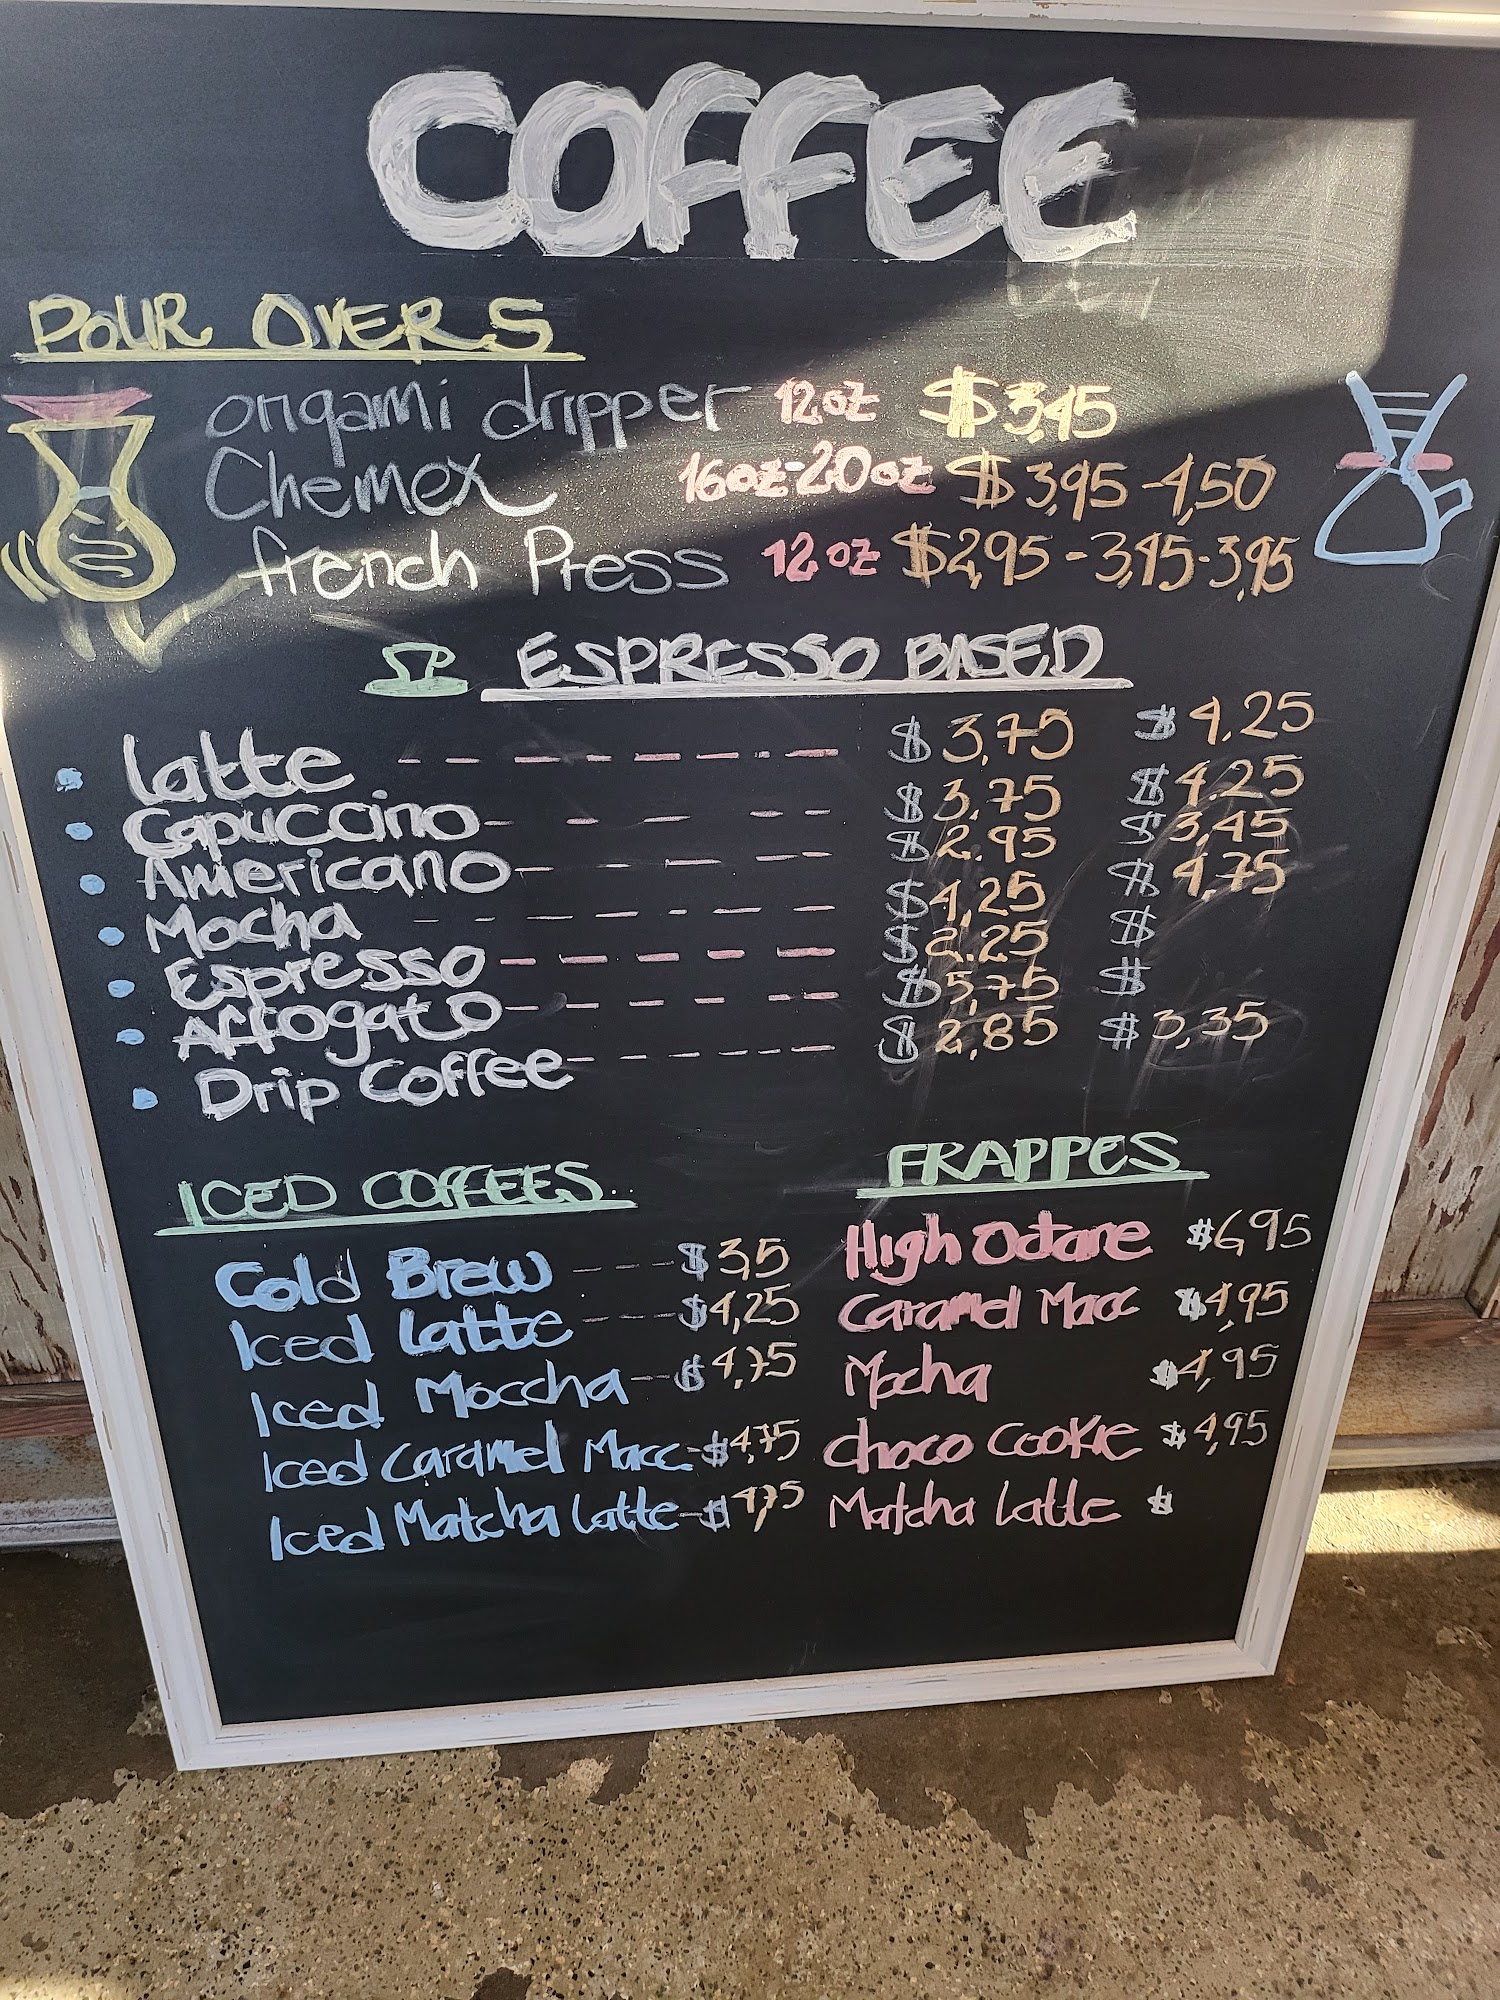 COFFEE
POUR OVERS
origami dripper 12oz $3,45
Chemex 16oz-20oz $3,95-4,50
french Press 12oz $2,95-3,45-3,95
ESPRESSO BASED
Latte $3,75 $4,25
Capuccino $3,75 $4.25
Americano $2.95 $3,45
Mocha $4,25 $4,75
Espresso $2.25 $
Affogato $5,75 $
Drip Coffee $2,85 $3,35
ICED COFFEES
Cold Brew $3,5
Iced Latte $4,25
Iced Moccha $4,75
Iced Caramel Macc $4,75
Iced Matcha Latte $4,75
FRAPPES
High Octane $6,95
Caramel Macc $4,95
Mocha $4,95
Choco Cookie $4,95
Matcha Latte $